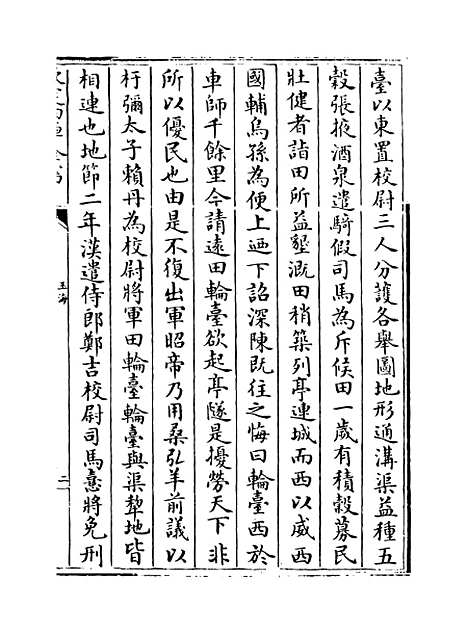 臺以東置校尉三人分護各舉圖地形通溝渠益種五
穀張掖酒泉遣騎假司馬為斥候田一歲有積穀募民
壯健者詣田所益墾溉田稍築列亭連城而西以威西
國輔烏孫為便上迺下詔深陳既往之悔曰輪臺西於
車師千餘里今請遠田輪臺欲起亭隧是擾勞天下非
所以優民也由是不復出軍昭帝乃用桑弘羊前議以
杅彌太子賴丹為校尉將軍田輪臺輪臺與渠犂地皆
相連也地節二年漢遣侍郎鄭吉校尉司馬憙將免刑
玉海
二